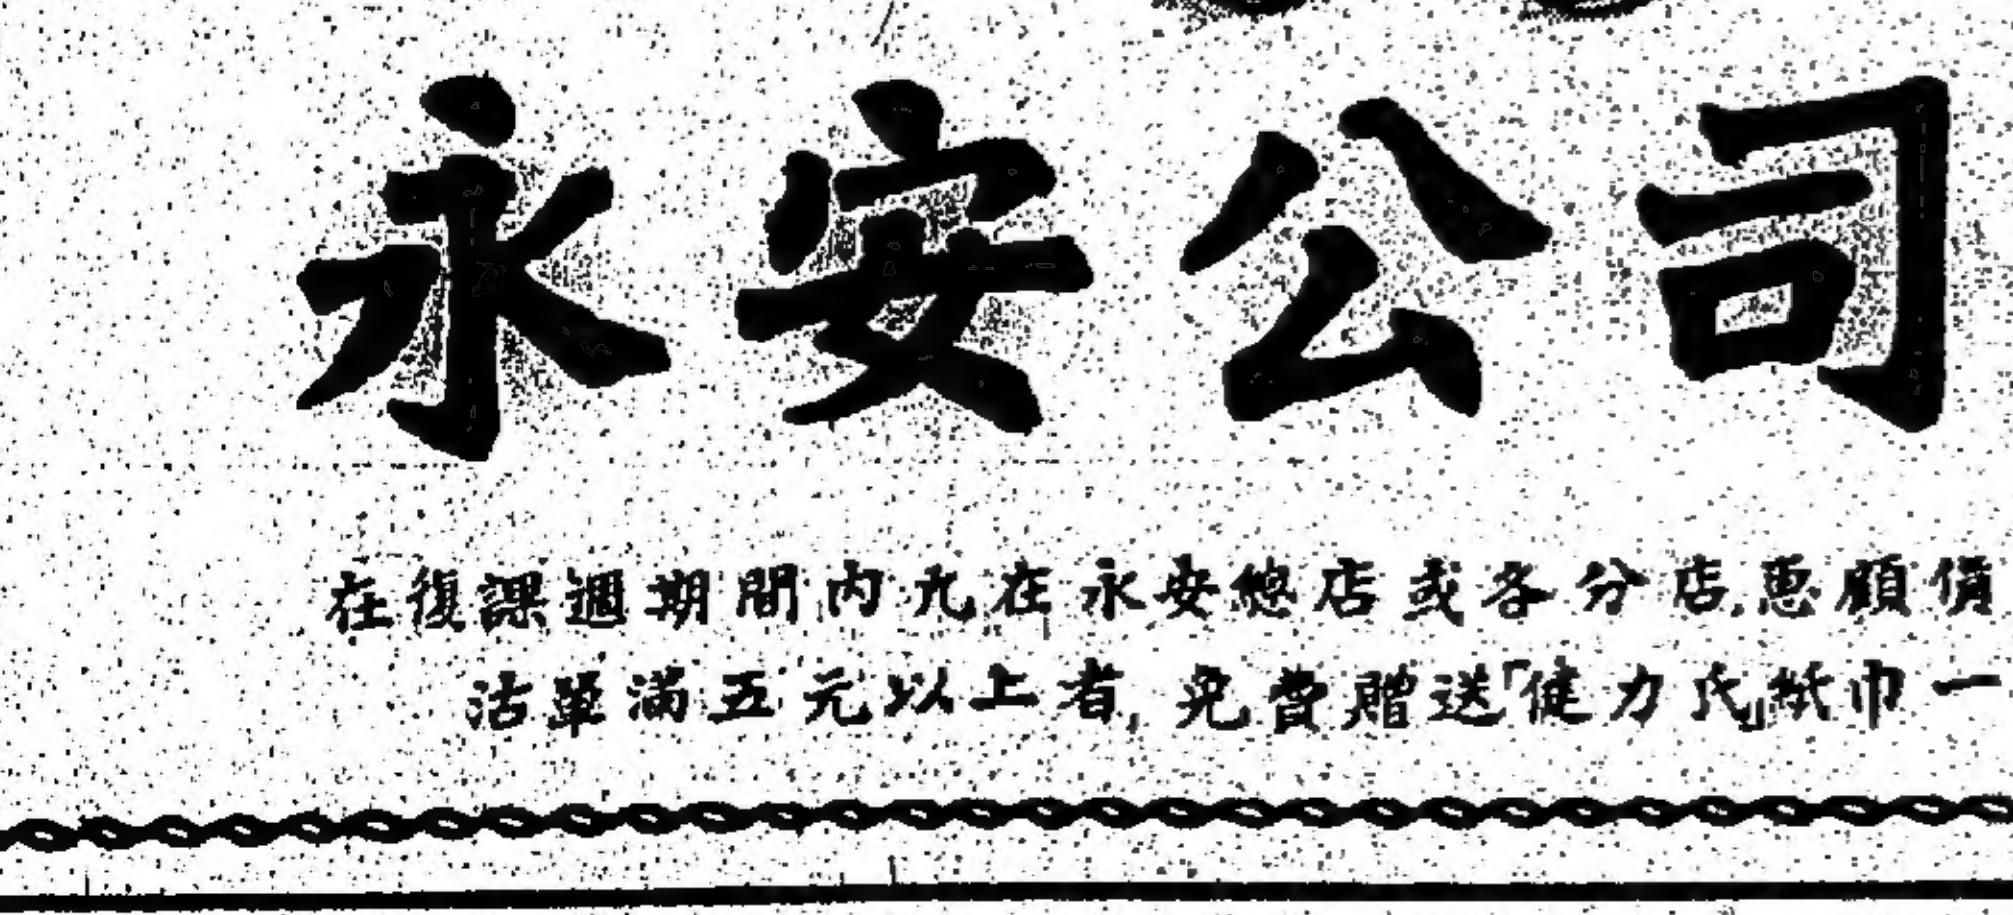 永安公司
在復課週期間內凡在永安總店或各分店,惠顧價
沽單滿五元以上者,免費贈送「健力氏」紙巾一